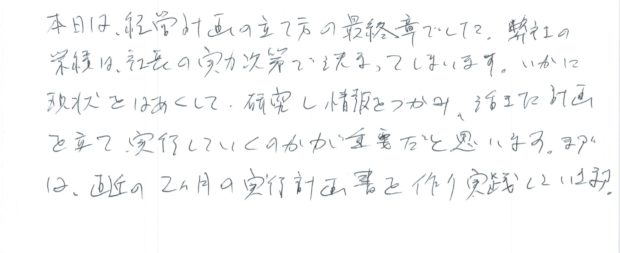 本日は、経営計画の立て方の最終章でした。弊社の
業績は、社長の実力次第で決まってしまいます。いかに
現状をはあくして、研究し情報をつかみ、活きた計画
を立て、実行していくのかが重要だと思います。まず
は、直近の2ヵ月の実行計画書を作り実践していきます。